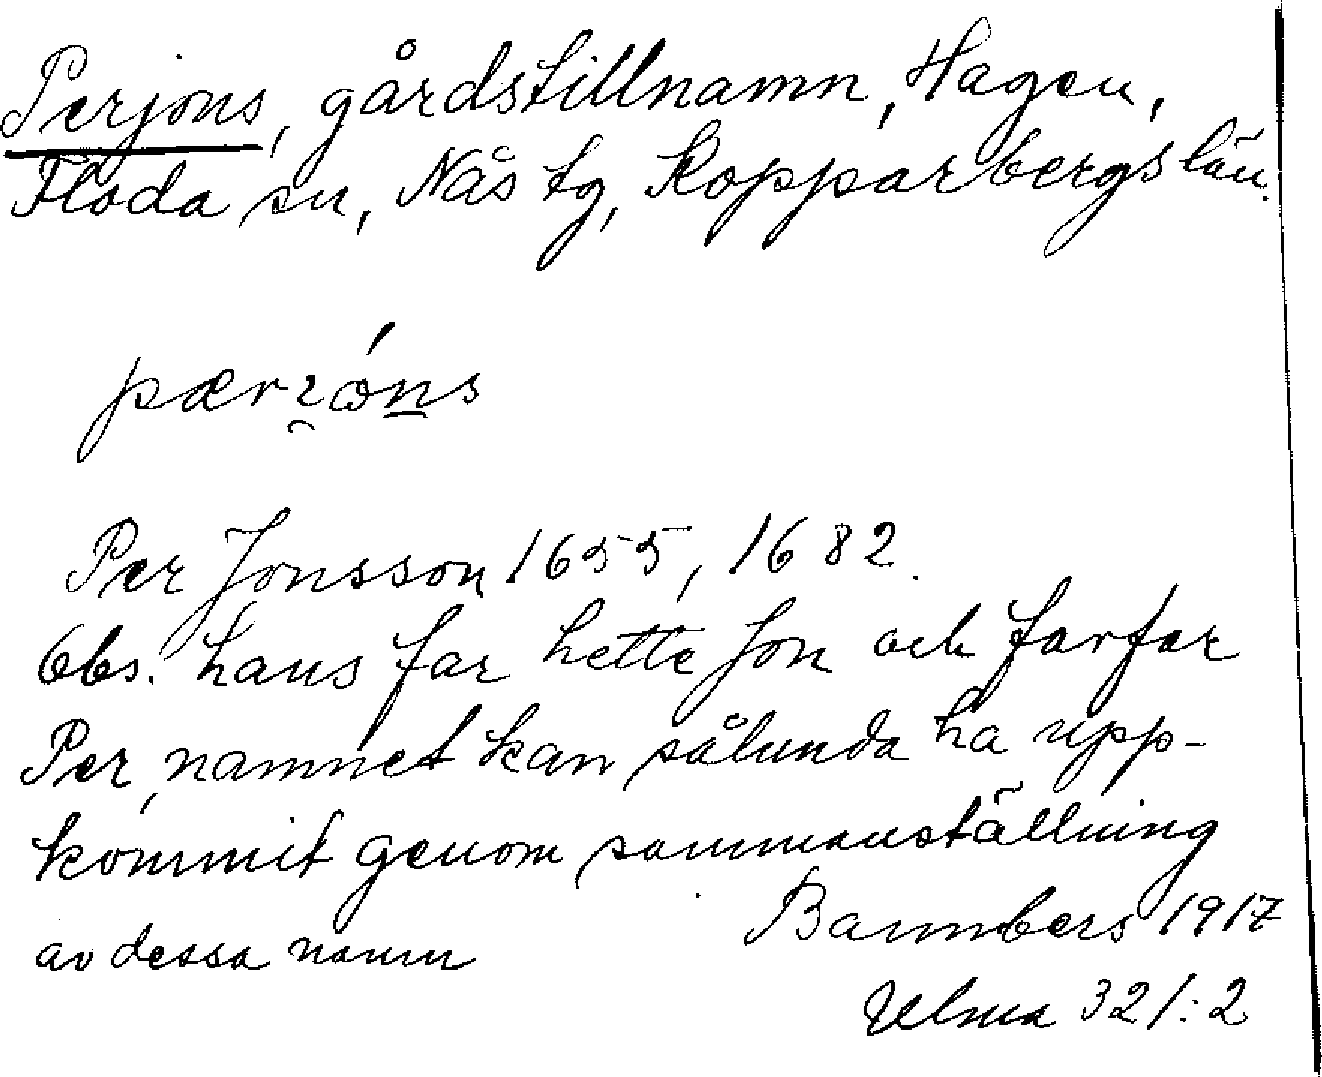 Perjons, gårdstillnamn, Hagen,
Floda sn, Nås tg, Kopparbergs län.
Per Jonsson 1655, 1682.
Obs. hans far hette Jon och farfar
Per, namnet kan sålunda ha upp-
kommit genom sammanställning
av dessa namn
Bannbers 1917
Ulma 321:2